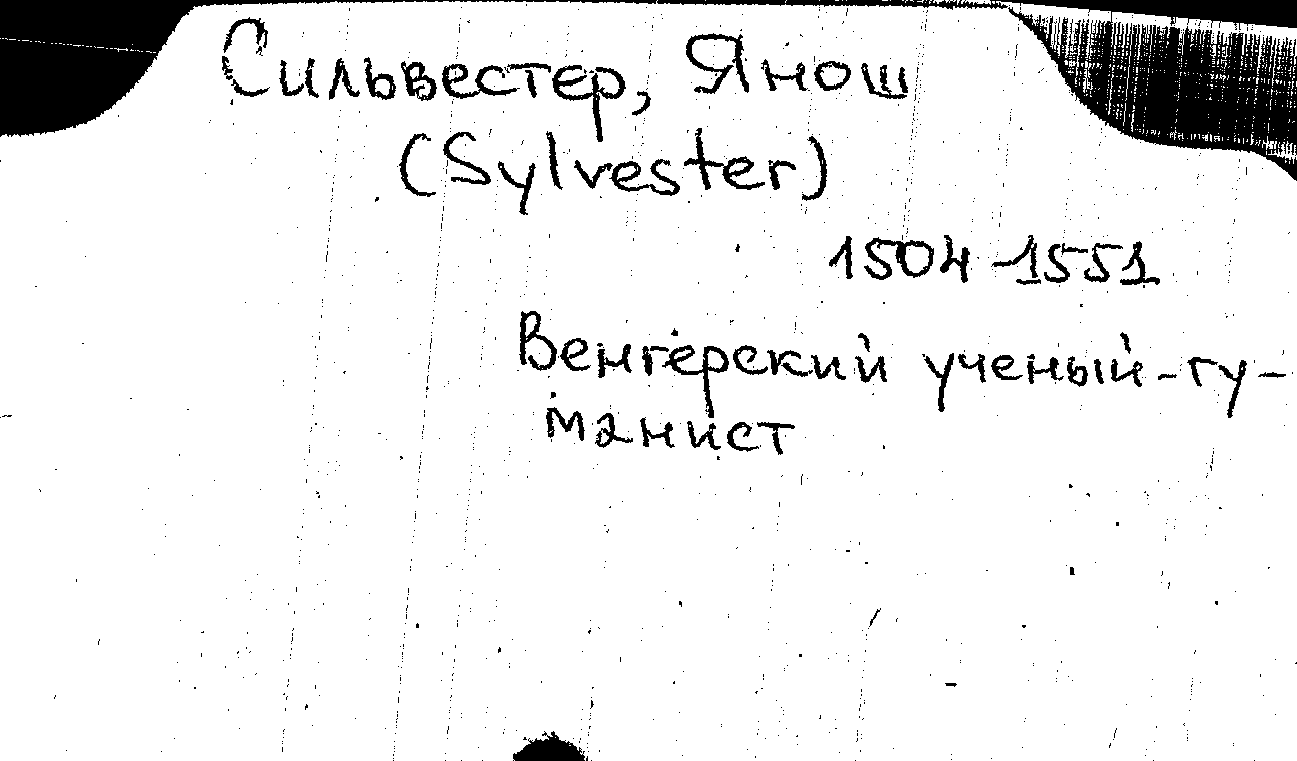 Сильвестер, Янош
(Sylvester)
1504-1551
Венгерский ученый-гу-
манист